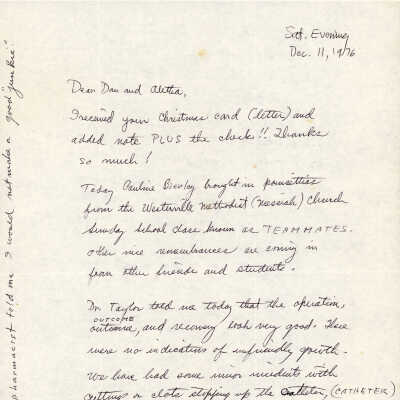 Sat. Evening
Dec. 11, 1976
Dear Dan and Aletha,
I received your Christmas card (letter) and
added note PLUS the check!! Thanks
so much!
Today Pauline brought in poinsettias
from the Westerville Methodist (Messiah) Church
Sunday School class known as TEAMMATES.
Other nice remembrances are coming in
from other friends and students.
Dr. Taylor told me today that the operation,
OUTCOME
outcome, and recovery look very good. There
were no indications of unfriendly growth.
We have had some minor incidents with
or clots stopping up the catheter, (CATHETER)
pharmacist told me I would not make a good "junkie"